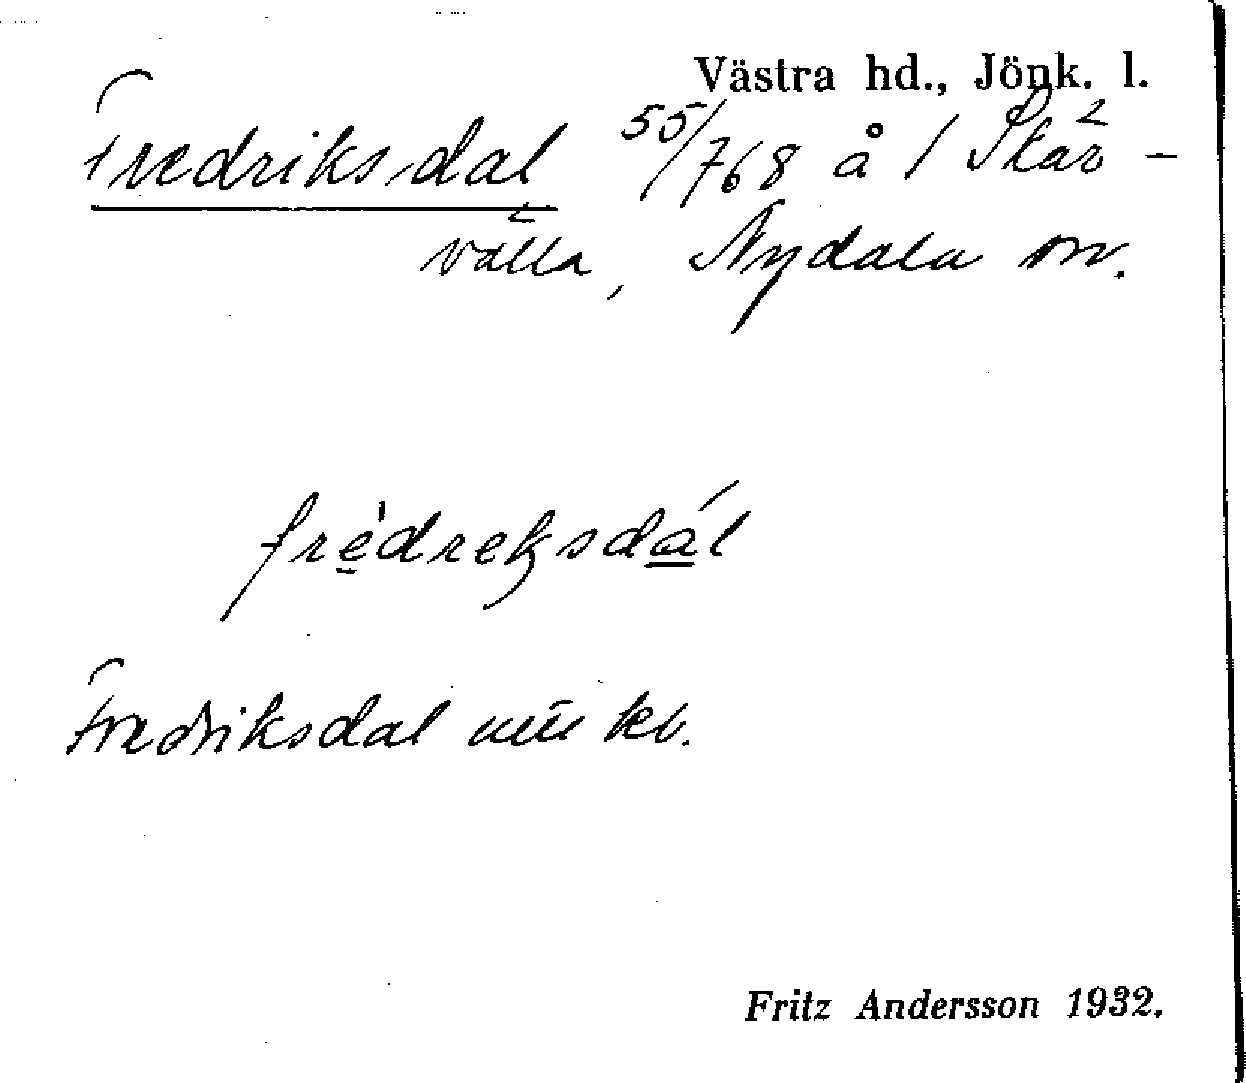 Västra hd., Jönk. l.
Fredriksdal 55/768 å 1 Skär-
välla, Nydala sn.
frèdreksdál
Fredriksdal kb.
Fritz Andersson 1932.